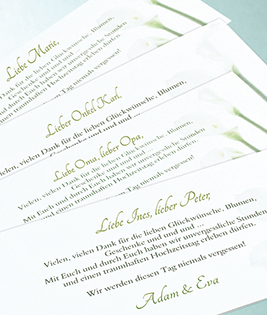 Liebe Marie,
Vielen, vielen Dank für die lieben Glückwünsche, Blumen,
Geschenke und und und ...
und durch Euch haben wir unvergessliche Stunden
traumhaften Hochzeitstag erleben dürfen.
niemals vergessen!
Lieber Onkel Karl,
Vielen, vielen Dank für die lieben Glückwünsche, Blumen,
Geschenke und und und
Liebe Oma, lieber Opa,
Vielen, vielen Dank für die lieben Glückwünsche, Blumen,
Geschenke und und und ...
Mit Euch und durch Euch haben wir unvergessliche Stunden
und einen traumhaften Hochzeitstag erleben dürfen.
Liebe Ines, lieber Peter,
Vielen, vielen Dank für die lieben Glückwünsche, Blumen,
Geschenke und und und ...
Mit Euch und durch Euch haben wir unvergessliche Stunden
und einen traumhaften Hochzeitstag erleben dürfen.
Wir werden diesen Tag niemals vergessen!
Adam & Eva